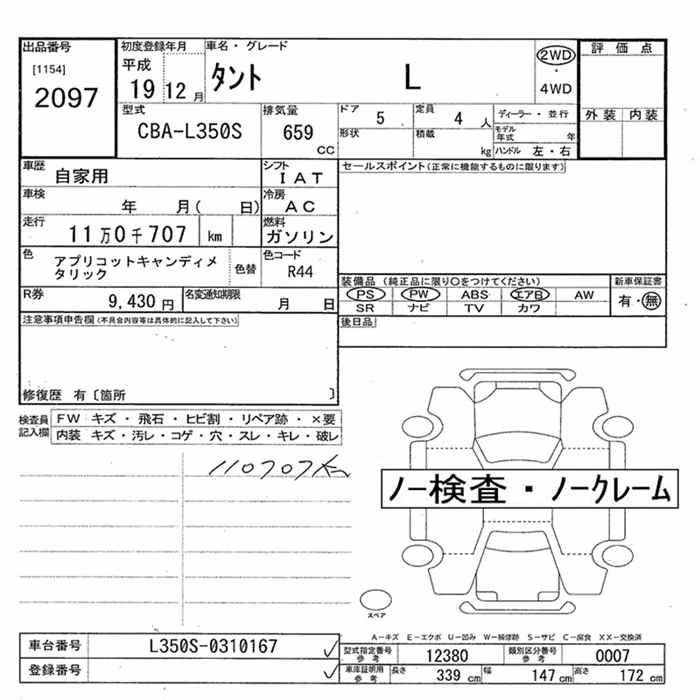 出品番号 初度登録年月 車名・グレード 評価点
[1154] 2097 平成 19 12月 タント L 2WD ・ 4WD 外装 内装
型式 CBA-L350S 排気量 659 CC ドア 5 定員 4 人 ディーラー・並行
形状 積載 kg モデル年式 年
ハンドル 左・右
車歴 自家用 シフト IAT セールスポイント(正常に機能するものに限ります)
車検 年 月( 日) 冷房 AC
走行 11万0千707 km 燃料 ガソリン
色 アプリコットキャンディメタリック 色替 色コード R44
装備品(純正品に限り○をつけてください) 新車保証書
PS PW ABS エアB AW 有・無
SR ナビ TV カワ
R券 9,430円 名変通知期限 月 日
注意事項申告欄(不具合内容等は具体的に記入して下さい) 後日品
修復歴 有〔箇所 〕
検査員記入欄 FW キズ・飛石・ヒビ割・リペア跡・×要
内装 キズ・汚レ・コゲ・穴・スレ・キレ・破レ
110707km
ノー検査・ノークレーム
スペア
A-キズ E-エクボ U-凹み W-補修跡 S-サビ C-腐食 XX-交換済
車台番号 L350S-0310167 型式指定番号 参考 12380 類別区分番号 参考 0007
登録番号 車庫証明用 参考 長さ 339 cm 幅 147 cm 高さ 172 cm